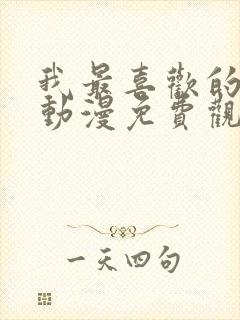 我最喜歡的
動漫免費觀
一天四句